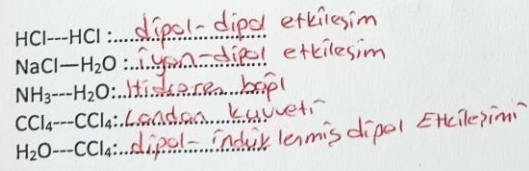 HCl---HCl :....dipol-dipol etkileşim
NaCl—H₂O :..iyon-dipol etkileşim
NH₃---H₂O:..Hidrojen bağı
CCl₄----CCl₄:.London kuvveti
H₂O---CCl₄:..dipol-indüklenmiş dipol Etkileşimi